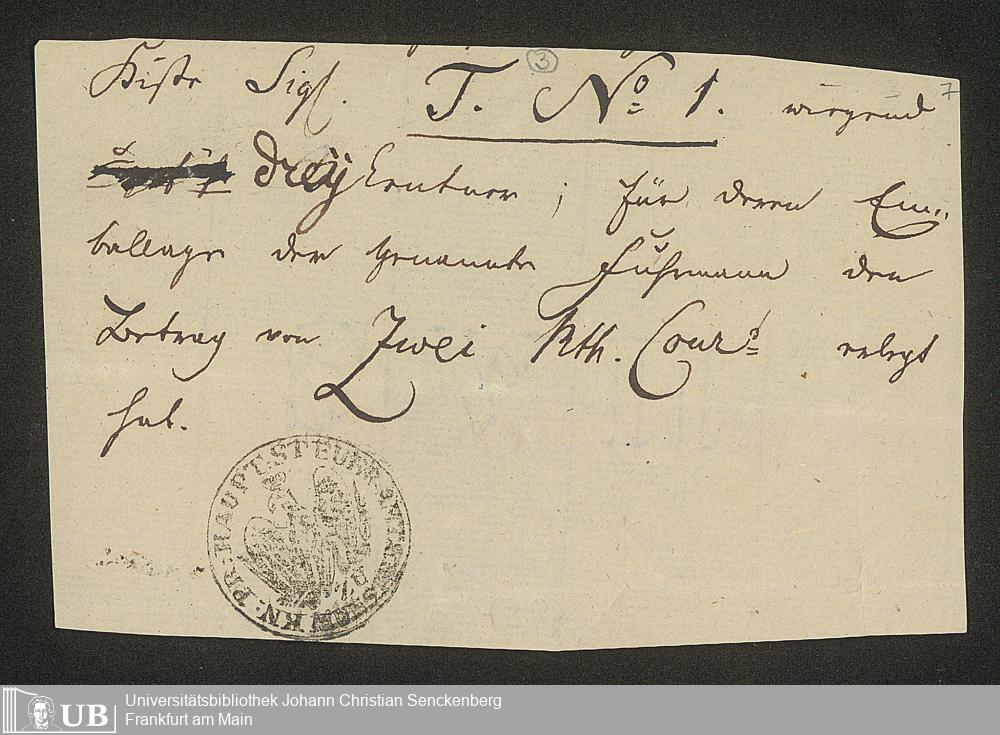 3
7
Kiste Sig. T. No 1. wiegend
drey Centner; für deren Em„
ballage der genannte Fuhrmann den
Betrag von Zwei Rth. Cour. erlegt
hat.
KN: PR: HAUPT-STEUER
UB
Universitätsbibliothek Johann Christian Senckenberg
Frankfurt am Main